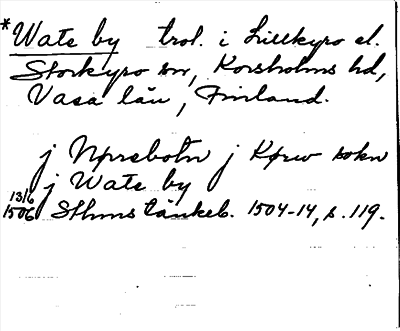 *Wate by trol. i Lillkyro el.
Storkyro sn, Korsholms hd,
Vasa län, Finland.
j Nørrebotn j Kørw sokn
j Wate by
13/6 1506 Sthms tänkeb. 1504-14, s. 119.